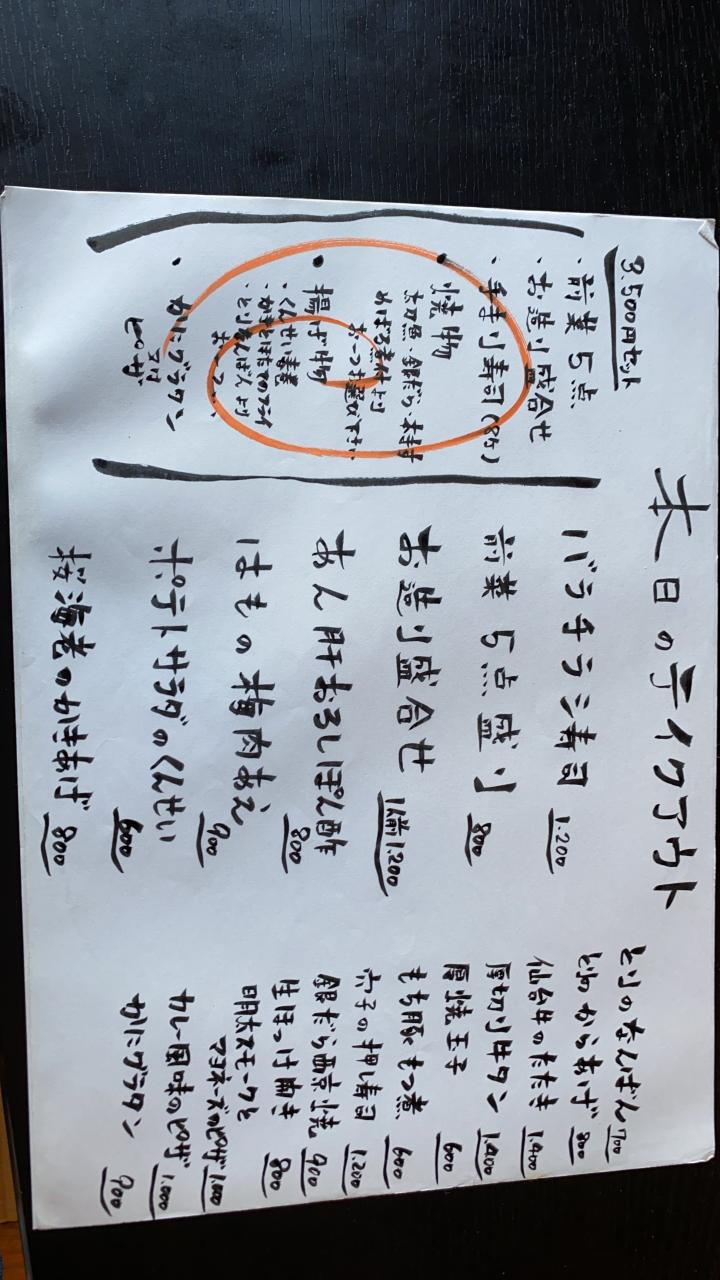 本日のテイクアウト
3.500円セット
・前菜5点
・お造り盛合せ
・手まり寿司(8ケ)
・焼物
めばる煮付より
お一つお選び下さい
・揚げ物
・くんせい春巻
・とりなんばんより
お一つ
・かにグラタン
又は
ピザ
バラチラシ寿司 1.200
前菜5点盛り 800
お造り盛合せ 1人前1.200
あん肝おろしぽん酢 800
はもの梅肉あえ 900
ポテトサラダのくんせい 600
桜海老のかきあげ 800
とりのなんばん 700
からあげ 800
仙台牛のたたき 1.400
厚切り牛タン 1.400
厚焼玉子 600
もち豚もつ煮 600
穴子の押し寿司 1.200
銀だら西京焼 900
生ほっけ開き 800
明太スモークと
マヨネーズのピザ 1.000
カレー風味のピザ 1.000
かにグラタン 900